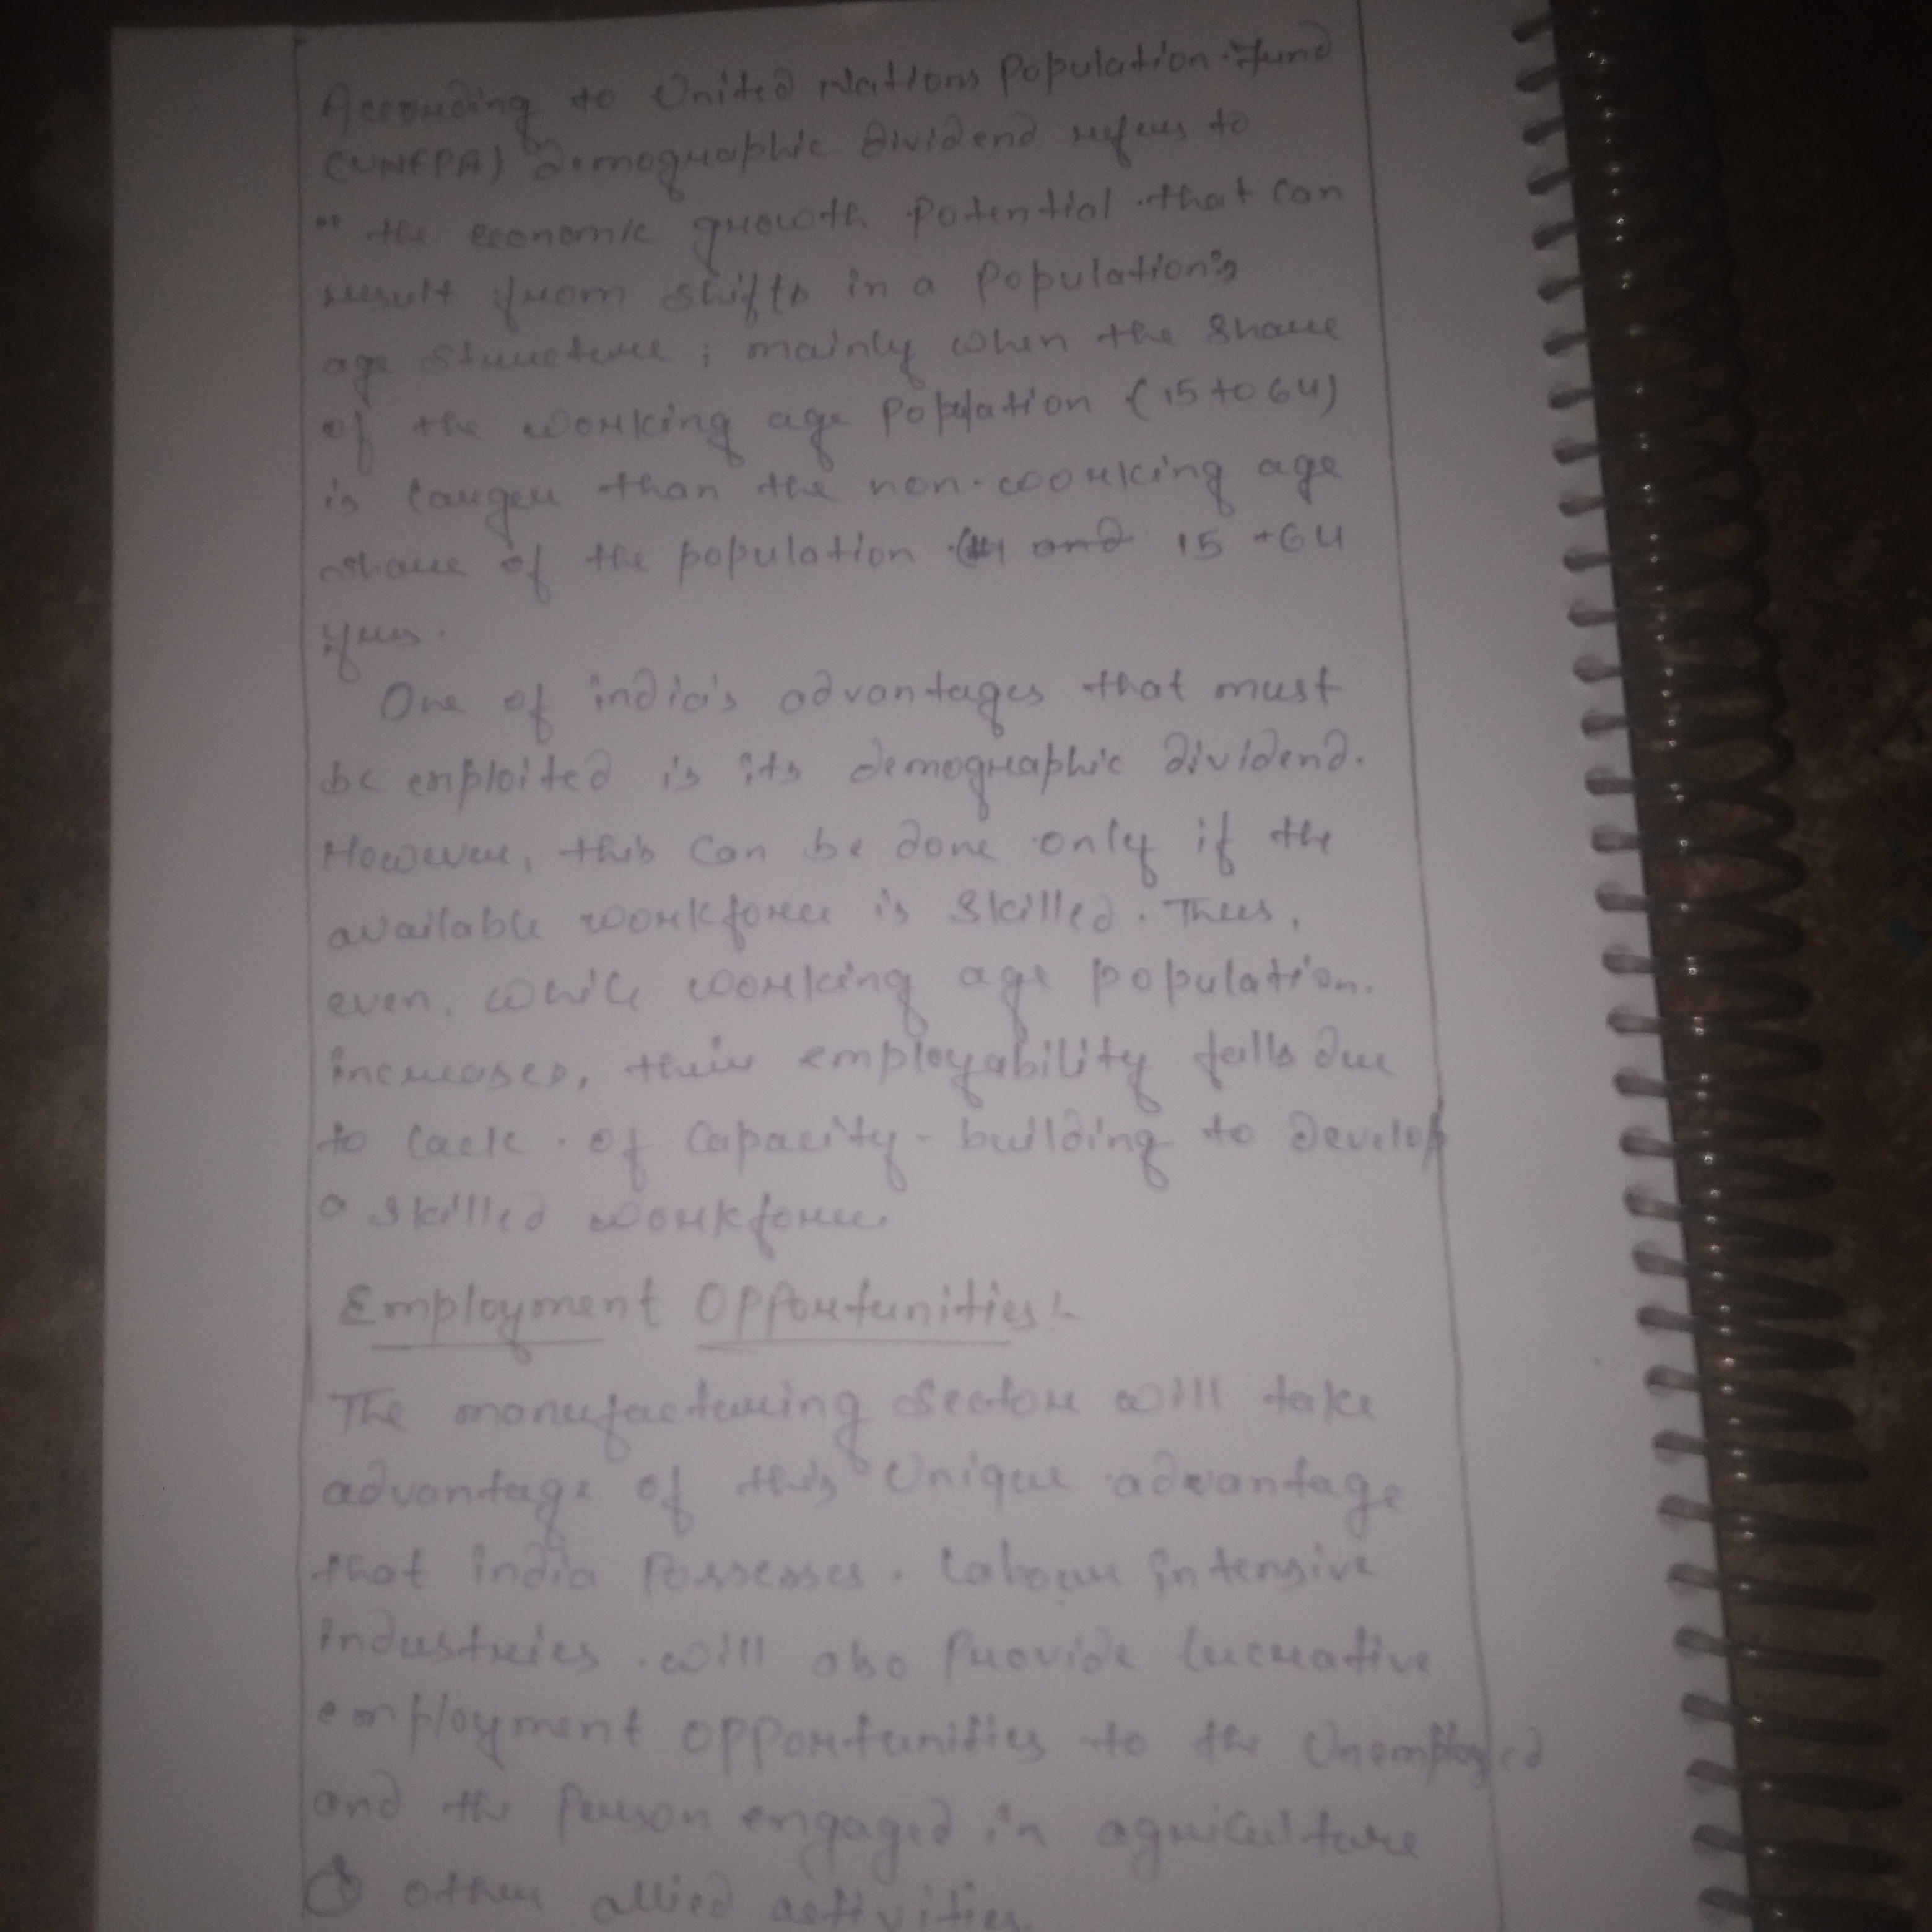 According to United Nations Population Fund
(UNFPA) Demographic Dividend refers to
" the economic growth potential that can
result from shifts in a population's
age structure ; mainly when the share
of the working age population (15 to 64)
is larger than the non-working age
share of the population and 15 + 64
yrs.
One of india's advantages that must
be exploited is its demographic dividend.
However, this can be done only if the
available workforce is skilled. Thus,
even, while working age population.
increases, their employability falls due
to lack of capacity - building to develop
a skilled workforce.
Employment Opportunities :-
The manufacturing sector will take
advantage of this unique advantage
that india possesses. Labour intensive
industries will also provide lucrative
employment opportunities to the unemployed
and the person engaged in agriculture
other allied activities.